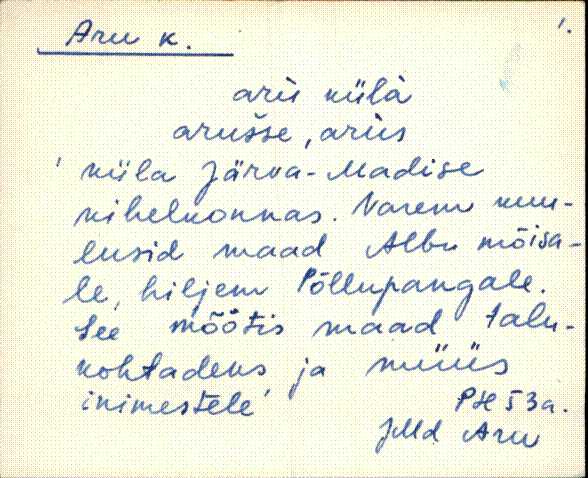 Aru k.
1.
arù külà
arušse, arùs
' küla Järva-Madise
kihelkonnas. Varem kuu-
lusid maad Albu mõisa-
le, hiljem Põllupangale.
See mõõtis maad talu-
kohtadeks ja müüs
inimestele'
PH 53a.
JMd Aru